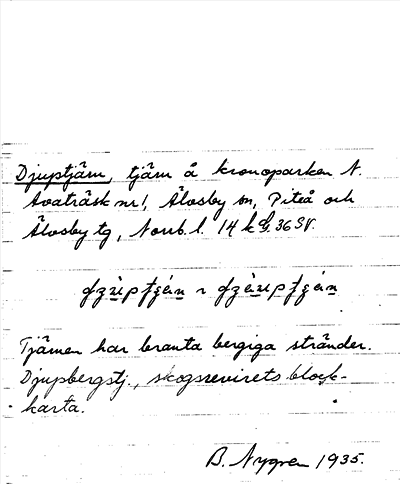 Djuptjärn, tjärn å kronoparken N.
Avaträsk nr 1, Älvsby sn, Piteå och
Älvsby tg, Norrb. l. 14 k 36 SV.
Tjärnen har branta bergiga stränder.
Djupbergstj., skogsrevirets block-
karta.
B. Nygren 1935.